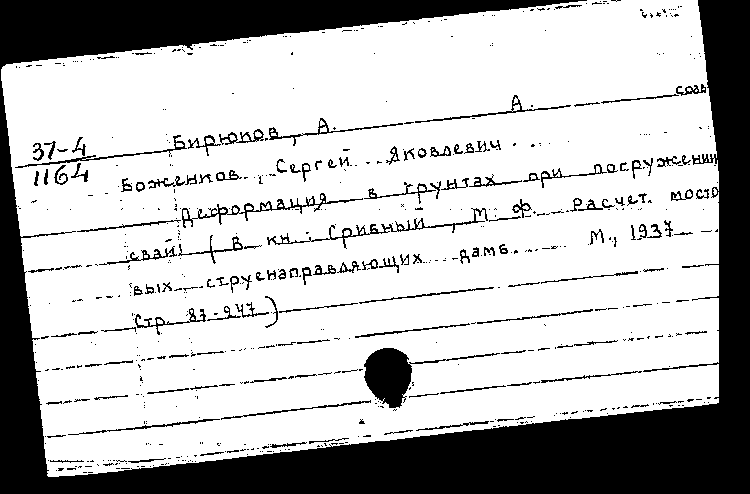 37-4
1164
Бирюков, А. А. созв
Боженков, Сергей Яковлевич.
Деформация в грунтах при погружении
свай (В кн: Срибный, М. Ф. Расчет мосто
вых струенаправляющих дамб. М., 1937
Стр. 87-247)